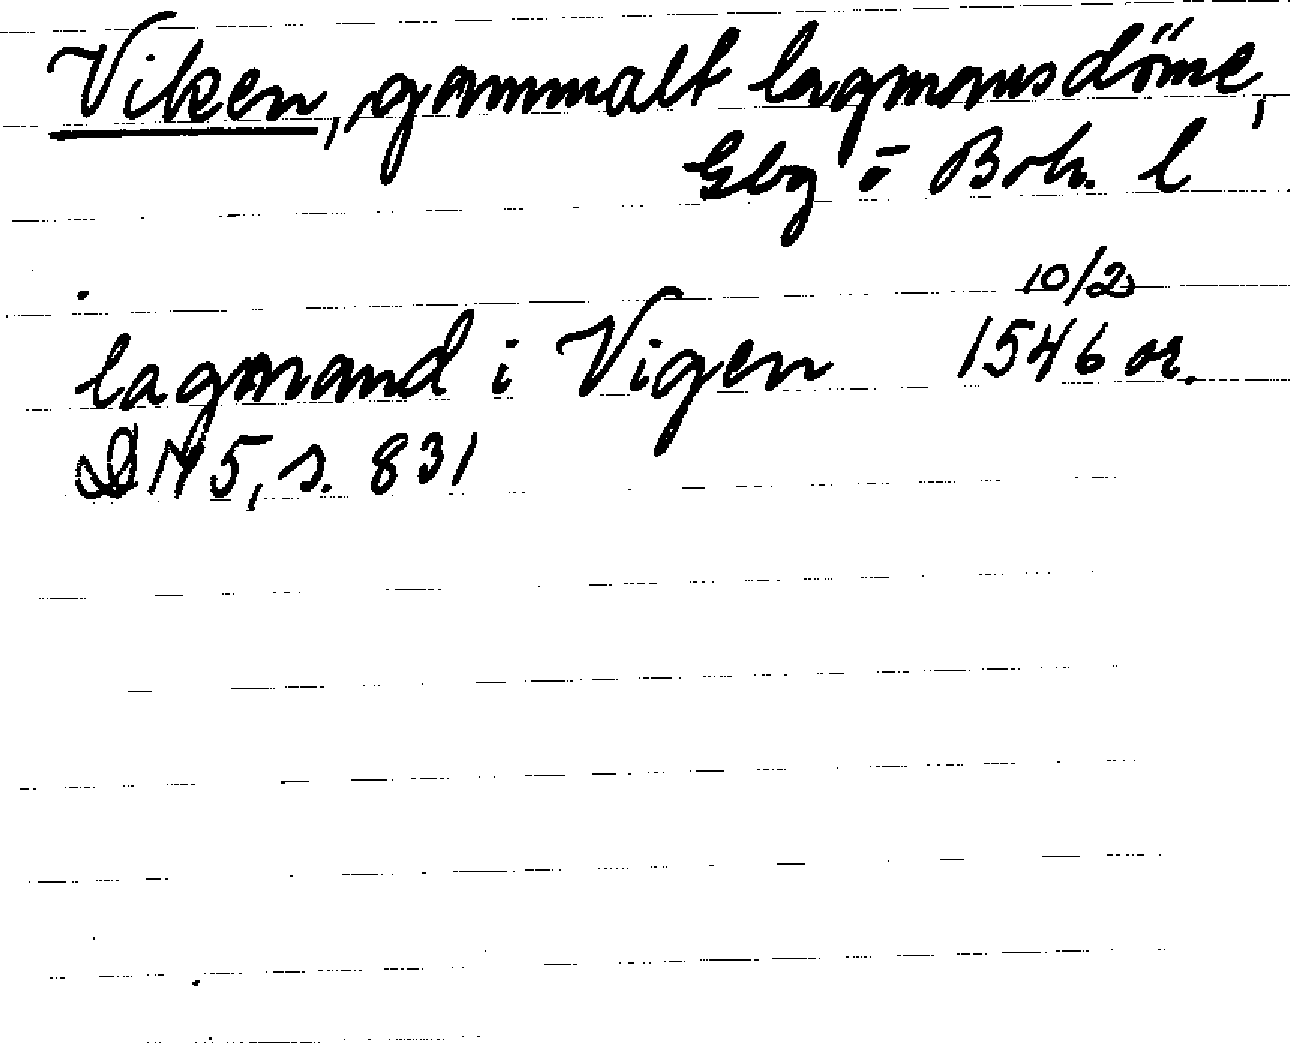 Viken, gammalt lagmansdöme,
Gbg o Boh. l
lagmand i Vigen 10/2 1546 or.
DN 5, s. 831